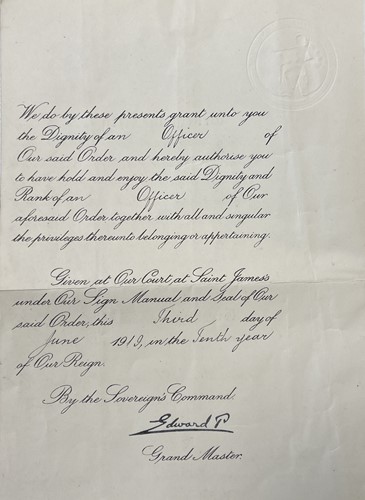 We do by these presents grant unto you
the Dignity of an Officer of
Our said Order and hereby authorise you
to have hold and enjoy the said Dignity and
Rank of an Officer of Our
aforesaid Order together with all and singular
the privileges thereunto belonging or appertaining.
Given at Our Court at Saint James's
under Our Sign Manual and Seal of Our
said Order, this Third day of
June 1919, in the Tenth year
of Our Reign.
By the Sovereign's Command.
Edward P
Grand Master.